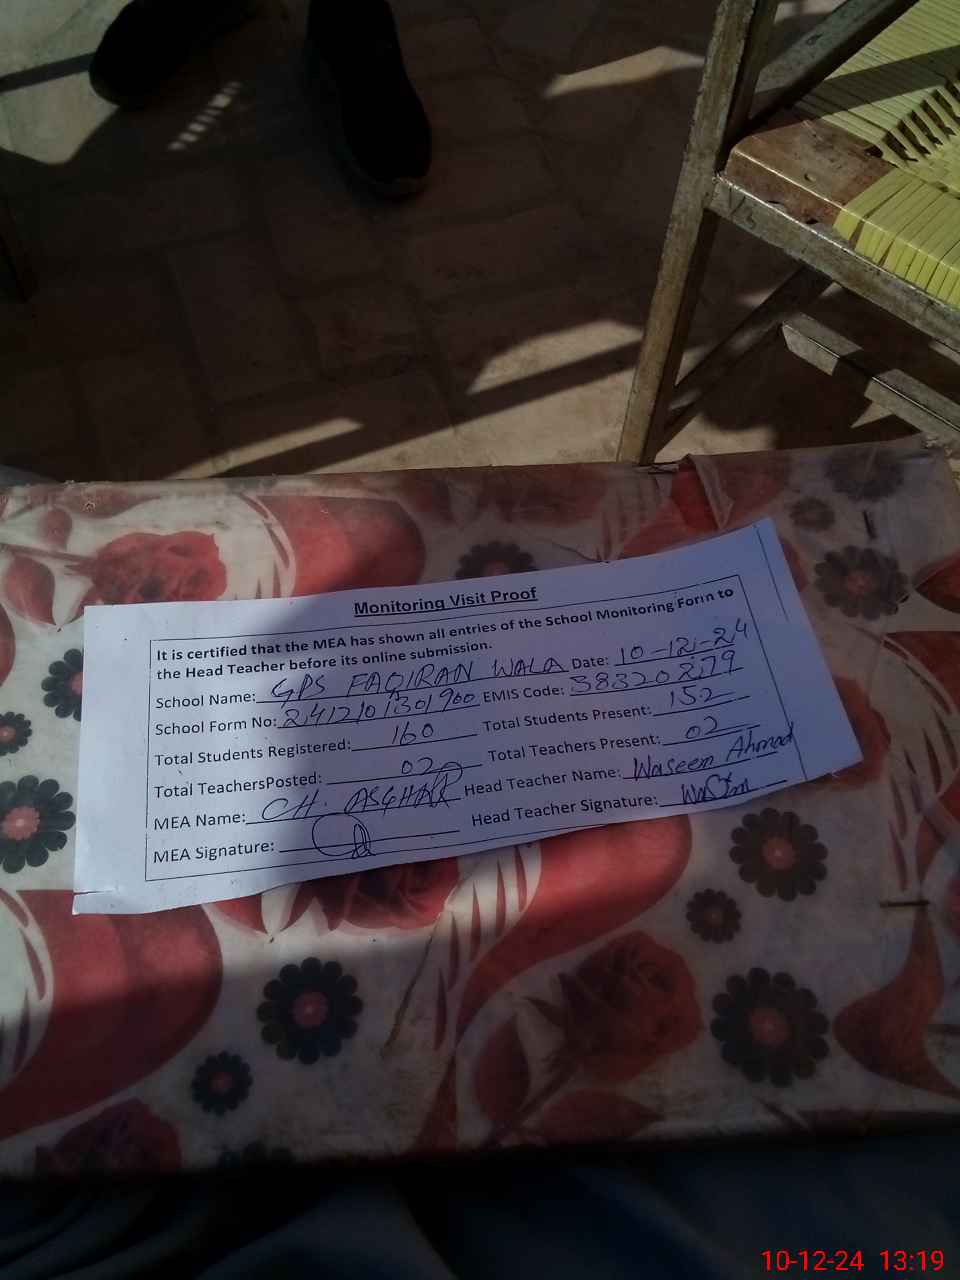 Monitoring Visit Proof
It is certified that the MEA has shown all entries of the School Monitoring Form to
the Head Teacher before its online submission.
School Name: GPS FAQIRAN WALA Date: 10-12-24
School Form No: 2412101301900 EMIS Code: 38320279
Total Students Registered: 160 Total Students Present: 152
Total TeachersPosted: 02 Total Teachers Present: 02
MEA Name: CH. ASGHAR Head Teacher Name: Waseem Ahmad
MEA Signature: Head Teacher Signature: Waseem
10-12-24 13:19